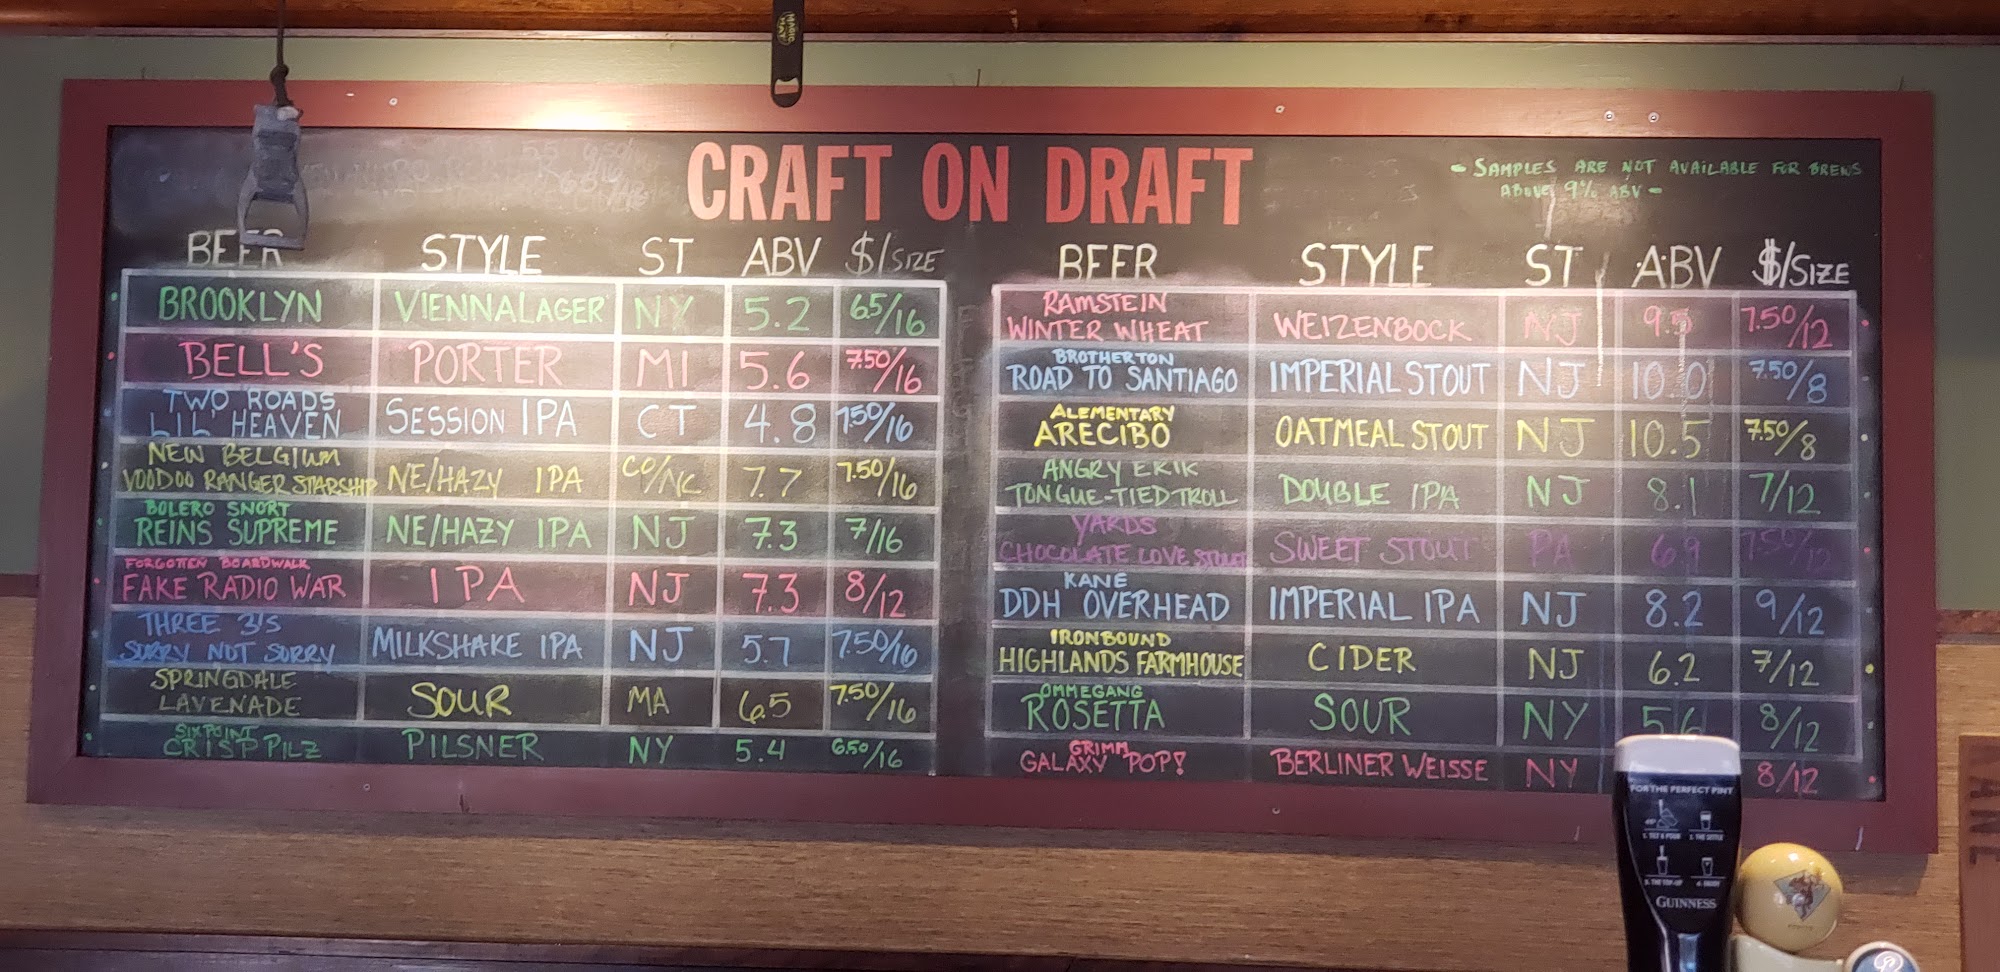 MAGIC HAT
CRAFT ON DRAFT
- SAMPLES ARE NOT AVAILABLE FOR BREWS
ABOVE 9% ABV -
BEER STYLE ST ABV $/SIZE
BROOKLYN VIENNA LAGER NY 5.2 6.5/16
BELL'S PORTER MI 5.6 7.50/16
TWO ROADS
LIL' HEAVEN SESSION IPA CT 4.8 7.50/16
NEW BELGIUM
VOODOO RANGER STARSHIP NE/HAZY IPA CO/NC 7.7 7.50/16
BOLERO SNORT
REINS SUPREME NE/HAZY IPA NJ 7.3 7/16
FORGOTTEN BOARDWALK
FAKE RADIO WAR IPA NJ 7.3 8/12
THREE 3'S
SORRY NOT SORRY MILKSHAKE IPA NJ 5.7 7.50/16
SPRINGDALE
LAVENADE SOUR MA 6.5 7.50/16
SIXPOINT
CRISP PILZ PILSNER NY 5.4 6.50/16
BEER STYLE ST ABV $/SIZE
RAMSTEIN
WINTER WHEAT WEIZENBOCK NJ 9.5 7.50/12
BROTHERTON
ROAD TO SANTIAGO IMPERIAL STOUT NJ 10.0 7.50/8
ALEMENTARY
ARECIBO OATMEAL STOUT NJ 10.5 7.50/8
ANGRY ERIK
TONGUE-TIED TROLL DOUBLE IPA NJ 8.1 7/12
YARDS
CHOCOLATE LOVE STOUT SWEET STOUT PA 6.9 7.50/12
KANE
DDH OVERHEAD IMPERIAL IPA NJ 8.2 9/12
IRONBOUND
HIGHLANDS FARMHOUSE CIDER NJ 6.2 7/12
OMMEGANG
ROSETTA SOUR NY 5.6 8/12
GRIMM
GALAXY POP! BERLINER WEISSE NY 8/12
FOR THE PERFECT PINT
GUINNESS
KANE